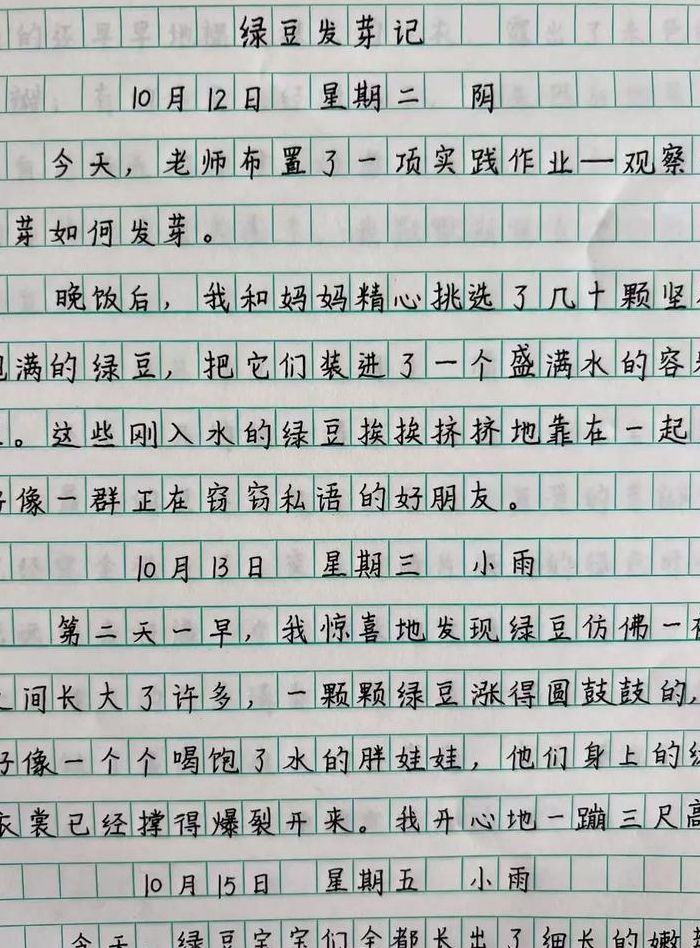 绿豆发芽记
10月12日 星期二 阴
今天，老师布置了一项实践作业—观察
芽如何发芽。
晚饭后，我和妈妈精心挑选了几十颗坚
满的绿豆，把它们装进了一个盛满水的容
。这些刚入水的绿豆挨挨挤挤地靠在一起
好像一群正在窃窃私语的好朋友。
10月13日 星期三 小雨
第二天一早，我惊喜地发现绿豆仿佛一
间长大了许多，一颗颗绿豆涨得圆鼓鼓的，
好像一个个喝饱了水的胖娃娃，他们身上的
衣裳已经撑得爆裂开来。我开心地一蹦三尺高
10月15日 星期五 小雨
今天，绿豆宝宝们全都长出了细长的嫩